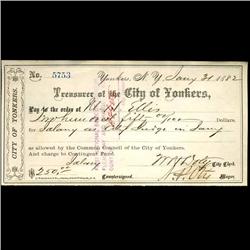 No. 5753 Yonkers, N.Y. Jany 31 1882
Treasurer of the City of Yonkers,
Pay to the order of Ellis
Two hundred fifty 00/100 Dollars,
for Salary as City Judge in Jany
as allowed by the Common Council of the City of Yonkers.
And charge to Contingent Fund.
Salary
$250.00 Countersigned, City Clerk
CITY OF YONKERS.